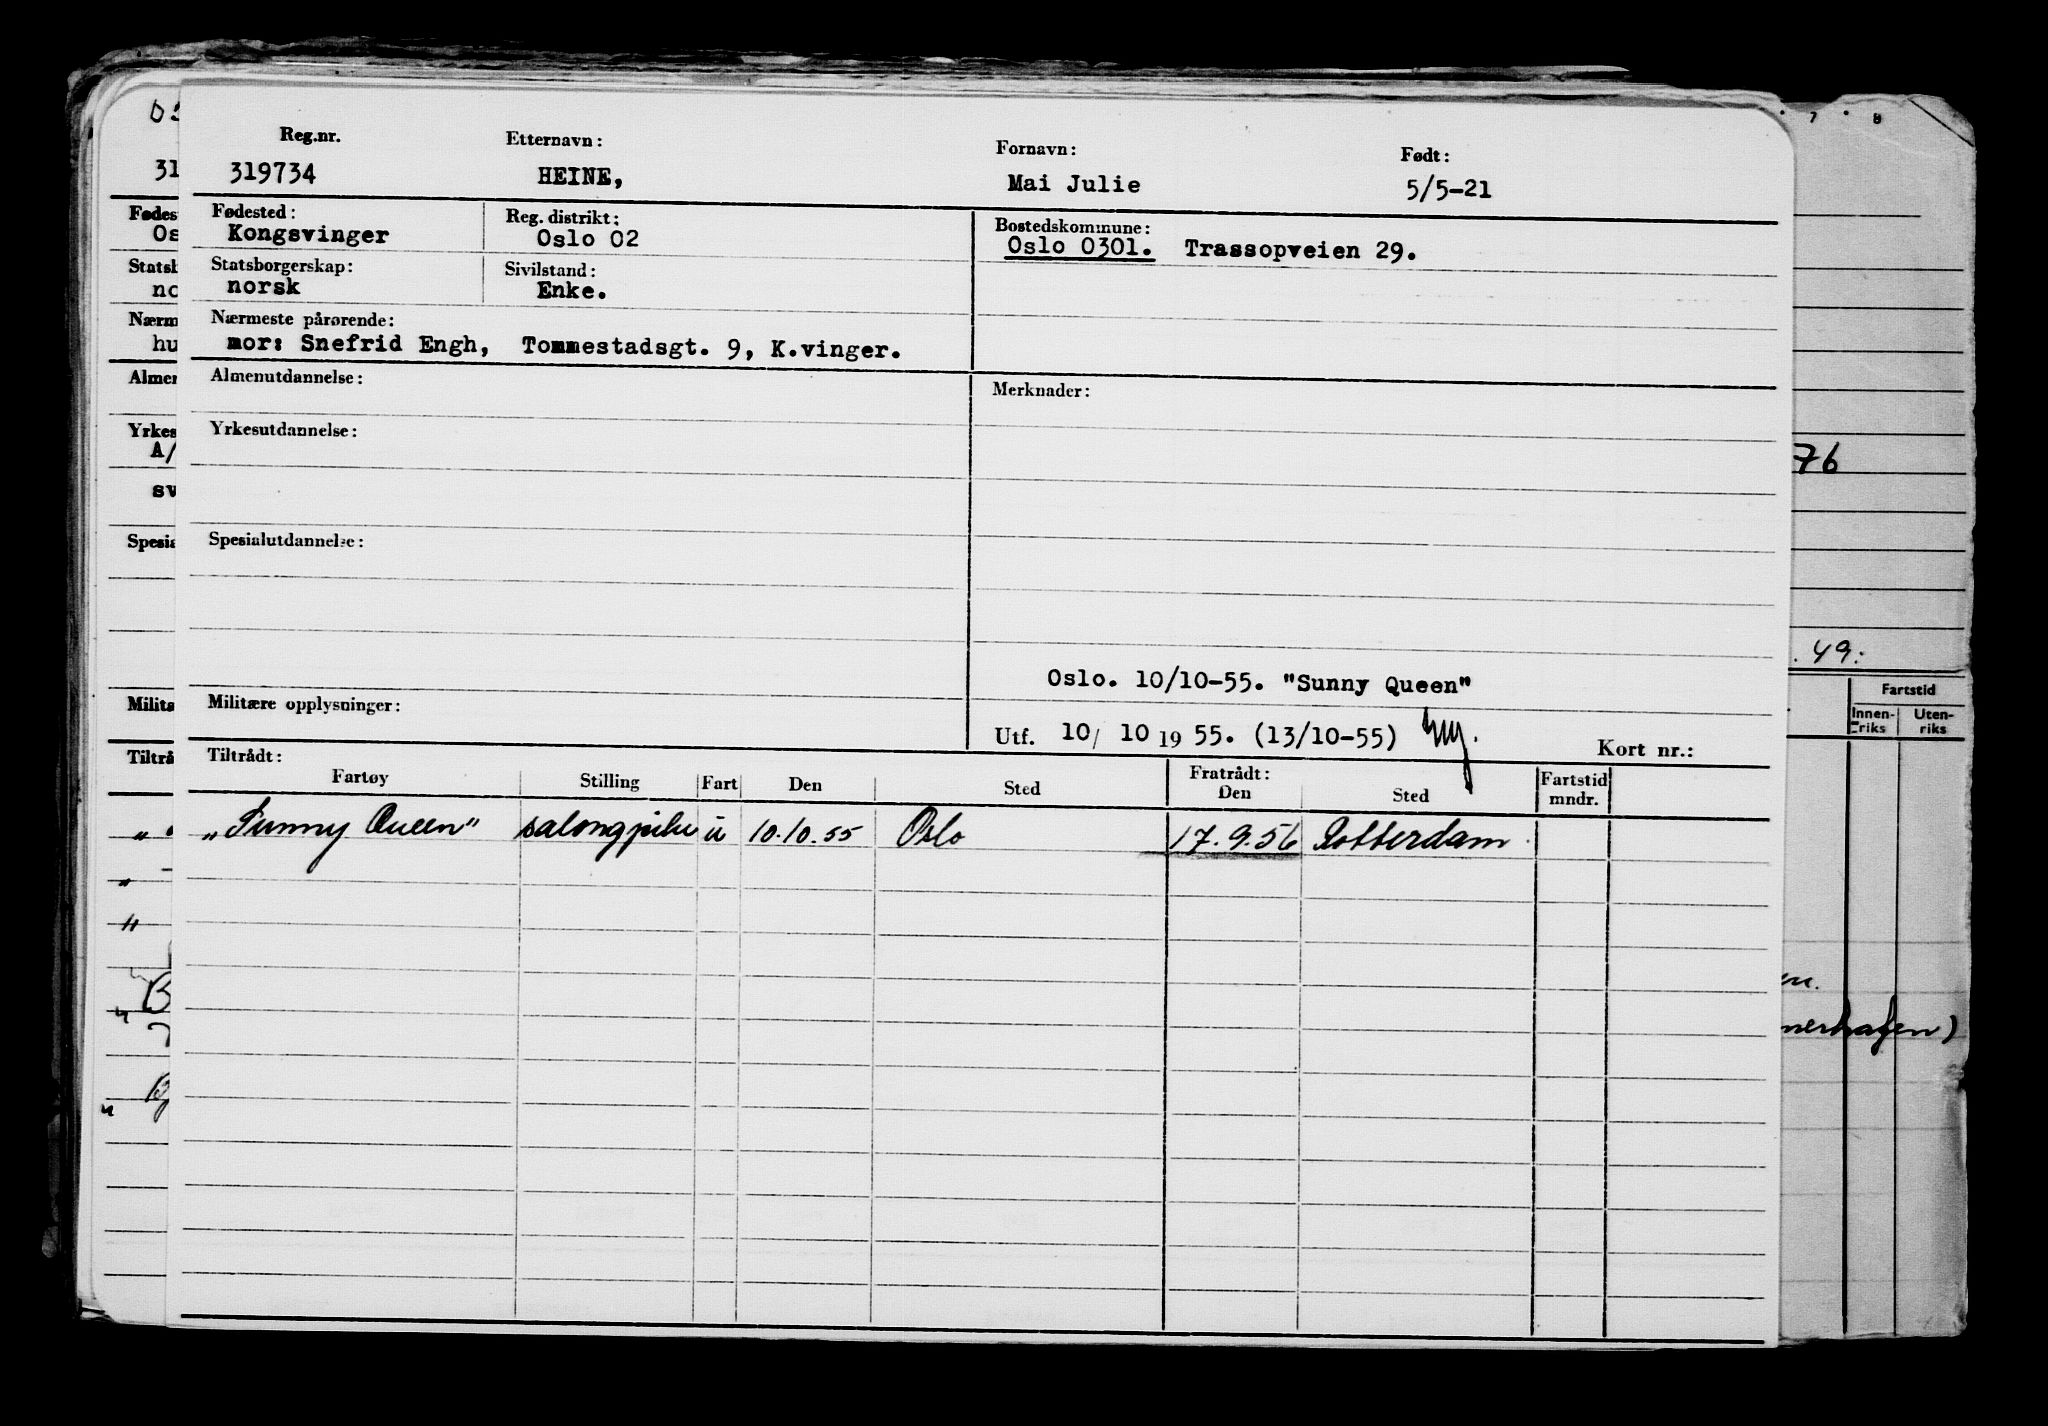 Reg.nr. Etternavn: Fornavn: Født:
319734 HEINE, Mai Julie 5/5-21
Fødested: Reg. distrikt: Bostedskommune:
Kongsvinger Oslo 02 Oslo 0301. Trassopveien 29.
Statsborgerskap: Sivilstand:
norsk Enke.
Nærmeste pårørende:
mor: Snefrid Engh, Tommestadsgt. 9, K.vinger.
Almenutdannelse: Merknader:
Yrkesutdannelse:
Spesialutdannelse:
Oslo. 10/10-55. "Sunny Queen"
Militære opplysninger:
Utf. 10/ 10 19 55. (13/10-55) Kort nr.:
Tiltrådt: Fratrådt: Fartstid
Fartøy Stilling Fart Den Sted Den Sted mndr.
„Sunny Queen" salongpike u 10.10.55 Oslo 17.9.56 Rotterdam
76
. 49.
Fartstid
Innen- Uten-
riks riks